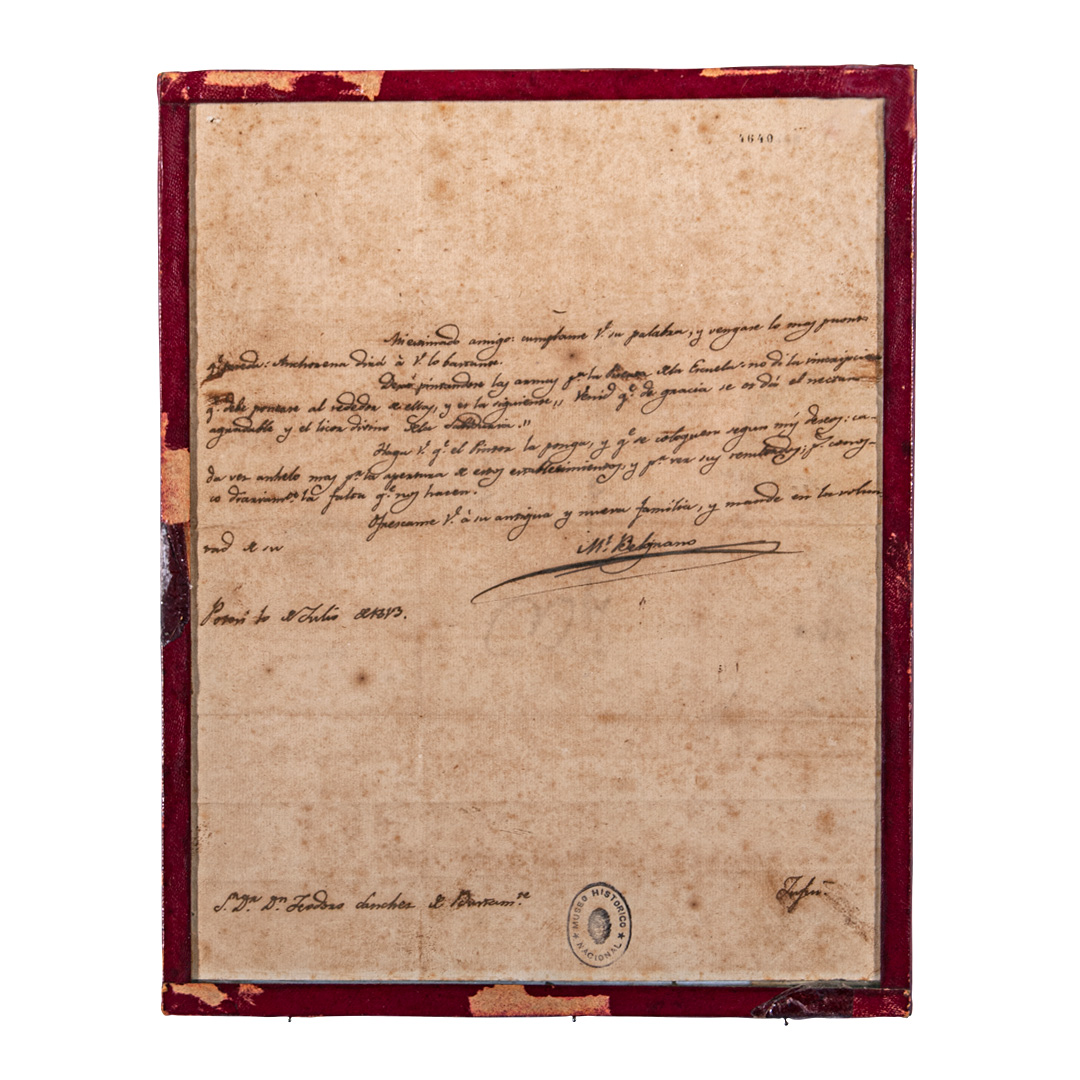 4640
Mi estimado amigo: cumplame V. su palabra, y vengase lo mas pronto
q.e pueda: Anchorena dirá à V. lo bastante.
Dexo pintandose las armas p.a la Escuela: no dí la inscripcion
q.e debe ponerse al rededor de ellas, y es la siguiente,, Venid q.e de gracia se os dá el nectar
agradable y el licor divino dela Sabiduria."
Haga V. q.e el Pintor la ponga, y q.e se coloquen segun mis deseos: ca-
da vez anhelo mas p.r la apertura de estos establecimientos, y p.r ver sus resultados; p.s conoz-
co diariam.te la falta q.e nos hacen.
Ofrescame V. à su antigua y nueva familia, y mande en la volun
tad de su
M.l Belgrano
Potosi de Julio de 1813.
S.or D.r D.n Teodoro Sanchez de Bustam.te
Jujuí
MUSEO HISTORICO
NACIONAL